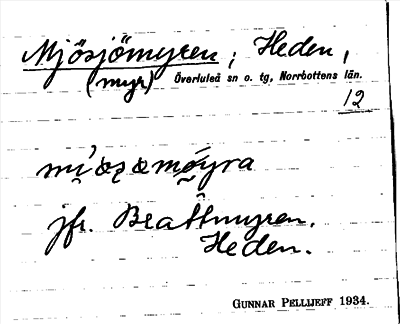 Mjösjömyren; Heden,
(myr) Överluleå sn o. tg, Norrbottens län.
12
jfr. Brattmyren,
Heden.
GUNNAR PELLIJEFF 1934.